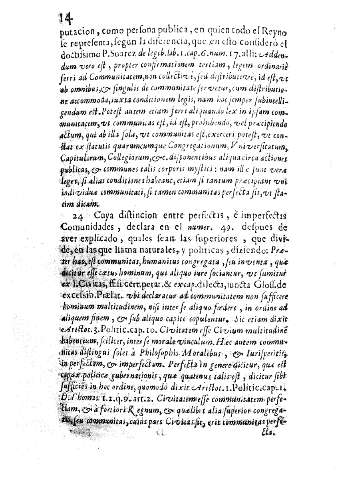 14
putacion, como persona publica, en quien todo el Reyno
se representa, segun la diferencia, que en esto consideró el
doctissimo P. Suarez de legib. lib. 1. cap. 6. num. 17. alli: Adden-
dum vero est, propter confirmationem tertiam, legem ordinarié
ferri ad Communitatem, non collectivi, sed distributivé, id est, vt
ab omnibus, & singulis de communitate servetur, cum distributio-
ne accommoda, iuxta conditionem legis, nam hoc semper subintelli-
gendum est. Potest autem etiam ferri aliquando lex in ipsam com-
munitatem, vt communitas est, id est, prohibendo, vel præcipiendo
actum, qui ab illa sola, vt communitas est, exerceri potest, vt con-
stat ex statutis quarumcumque Congregationum, Vniversitatum,
Capitulorum, Collegiorum, & c. disponentibus aliqua circa actiones
publicas, & communes talis corporis mystici: nam illæ sunt veræ
leges, si alias conditiones habeant, etiam si tantum præcipiant vni
individuæ communitati, si tamen communitas perfecta sit, vt sta-
tim dicam.
24 Cuya distincion entre perfectas, è imperfectas
Comunidades, declara en el numer. 49. despues de
aver explicado, quales sean las superiores, que divi-
de, en las que llama naturales, y politicas, diziendo: Præ-
ter has, est communitas, humanitus congregata, seu inventa, quæ
dicitur esse cœtus hominum, qui aliquo iure sociantur, vt sumitur
ex l. Civitas, ff. si cert. petat. & ex cap. dilecta, iuncta Gloss. de
excessib. Prælat. vbi declaratur ad communitatem non sufficere
hominum multitudinem, nisi inter se aliquo fœdere, in ordine ad
aliquem finem, & sub aliquo capite copulentur. Sic etiam dixit
Aristot. 3. Politic. cap. 10. Civitatem esse Civium multitudinē
habentium, scilicet, inter se morale vinculum. Hæc autem commu-
nitas distingui solet à Philosophis Moralibus, & Iurisperitis,
in perfectam, & imperfectam. Perfecta in genere dicitur, quæ est
capax politicæ gubernationis, quæ quatenus talis est, dicitur sibi
sufficiens in hoc ordine, quomodo dixit Aristot. 1. Politic. cap. 1.
D. Thomas 1. 2. q. 9. art. 2. Civitatem esse communitatem perfe-
ctam, & à fortiori Regnum, & quælibet alia superior congrega-
tio, seu communitas, cuius pars Civitas sit, erit communitas perfe-
cta.